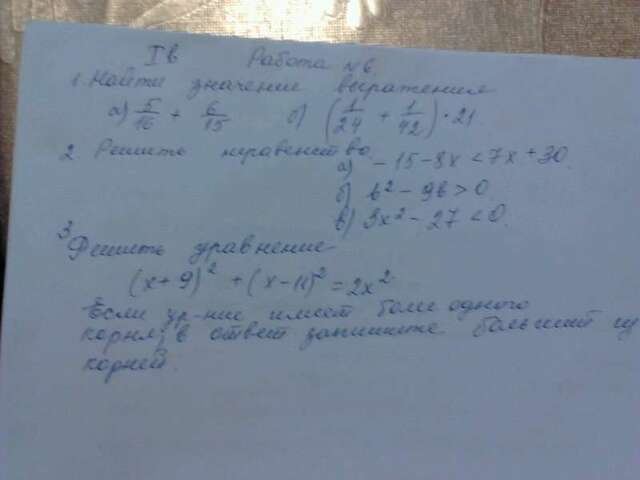 I в Работа №6
1. Найти значение выражения
а) 5/16 + 6/15 б) (1/24 + 1/42) · 21
2. Решить неравенство.
а) -15-8x < 7x + 30.
б) в² - 9в > 0.
в) 3x² - 27 < 0.
3. Решить уравнение
(x+9)² + (x-11)² = 2x²
Если ур-ние имеет боле одного
корня, в ответ запишите больший из
корней.